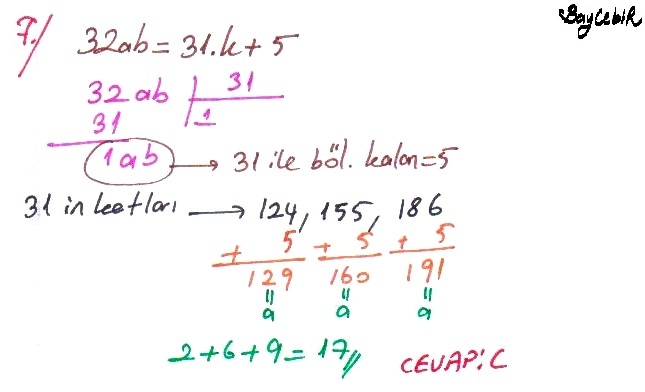 BayCebiR
7./ 32ab = 31.k + 5
32ab | 31
31 1
1ab → 31 ile böl. kalan = 5
31 in katları → 124, 155, 186
+ 5 + 5 + 5
129 160 191
= = =
a a a
2+6+9 = 17//
CEVAP: C